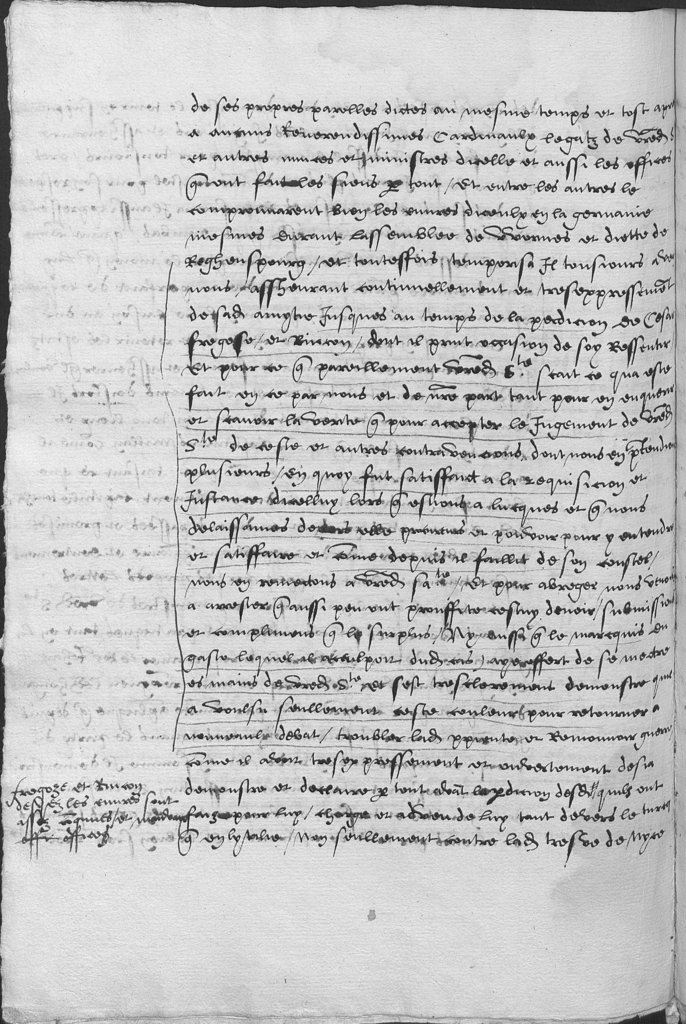 de ses propres parolles dictes au mesme temps et tost apres
a aucuns Reverendissimes Cardinaulx legatz de vred S
et autres nunces et ministres dicelle et aussi les offices
q ont fait les siens p tout / Et entre les autres le
comprouvarent bien les euures diceulx en la germanie
mesmes durant lassemblee de wormes et diette de
Reghenspourg / et touteffois temporisa Il tousiours avec
nous / asseurant continuellement et tresexpressement
de sad amytie Jusques au temps de la perdicion de Cesar
fregose / et Rincon / dont il print occasion de soy Ressentir
Et pour ce q pareillement vred Ste scait ce qua este
fait en ce par nous et de nre part tant pour en enquerir
et scavoir la verite q pour accepter le Jugement de vred
Ste de ceste et autres contravencions, dont nous en pretendions
plusieurs / En quoy fut satisfaict a la requisicion et
Instance dicelluy lors q estions a lucques et q nous
delaissames devers elle procureurs et pouvoir pour y entendre
et satiffaire et come depuis il faillit de son coustel /
nous en remectons a vred Sate / Et pour abreger nous
a arrester q aussi peu ont prouffite cestuy devoir / submission
et complimens q le surplus / Ny aussi q le marcquis du
gasto lequel il inculpoit dud cas ; aye offert de se mectre
es mains de vred Ste et sest tresclerement demonstre quil
a voulsu seullement ceste couleur pour retourner a
nouveaulx debat / troubler lad et Renouveler guerre
come il avoit tresexpressement et ouvertement desia
demonstre et declaire p tout avant la perdicion desd quilz ont
faiz pour luy / charge et adveu de luy tant devers le turcq
q en lytalie / Non seullement contre lad tresve de Nyce
fregoze et Rincon
desd Et les euures sont
assez
offices